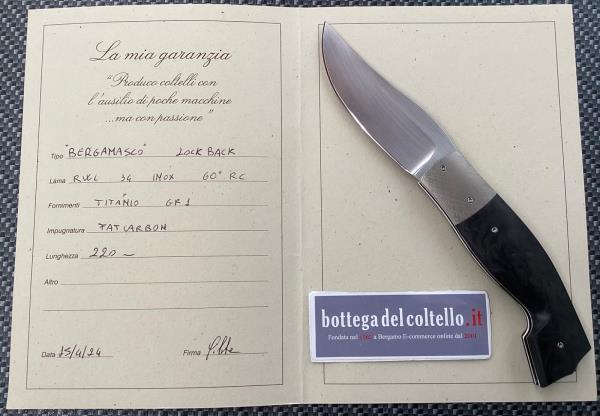 La mia garanzia
"Produco coltelli con
l'ausilio di poche macchine
...ma con passione"
Tipo "BERGAMASCO" LOCK BACK
Lama RWL 34 INOX 60° RC
Fornimenti TITANIO GR1
Impugnatura FATCARBON
Lunghezza 220 ~
Altro
Data 15/4/24 Firma
bottegadelcoltello.it
Fondata nel a Bergamo E-commerce online dal 2001